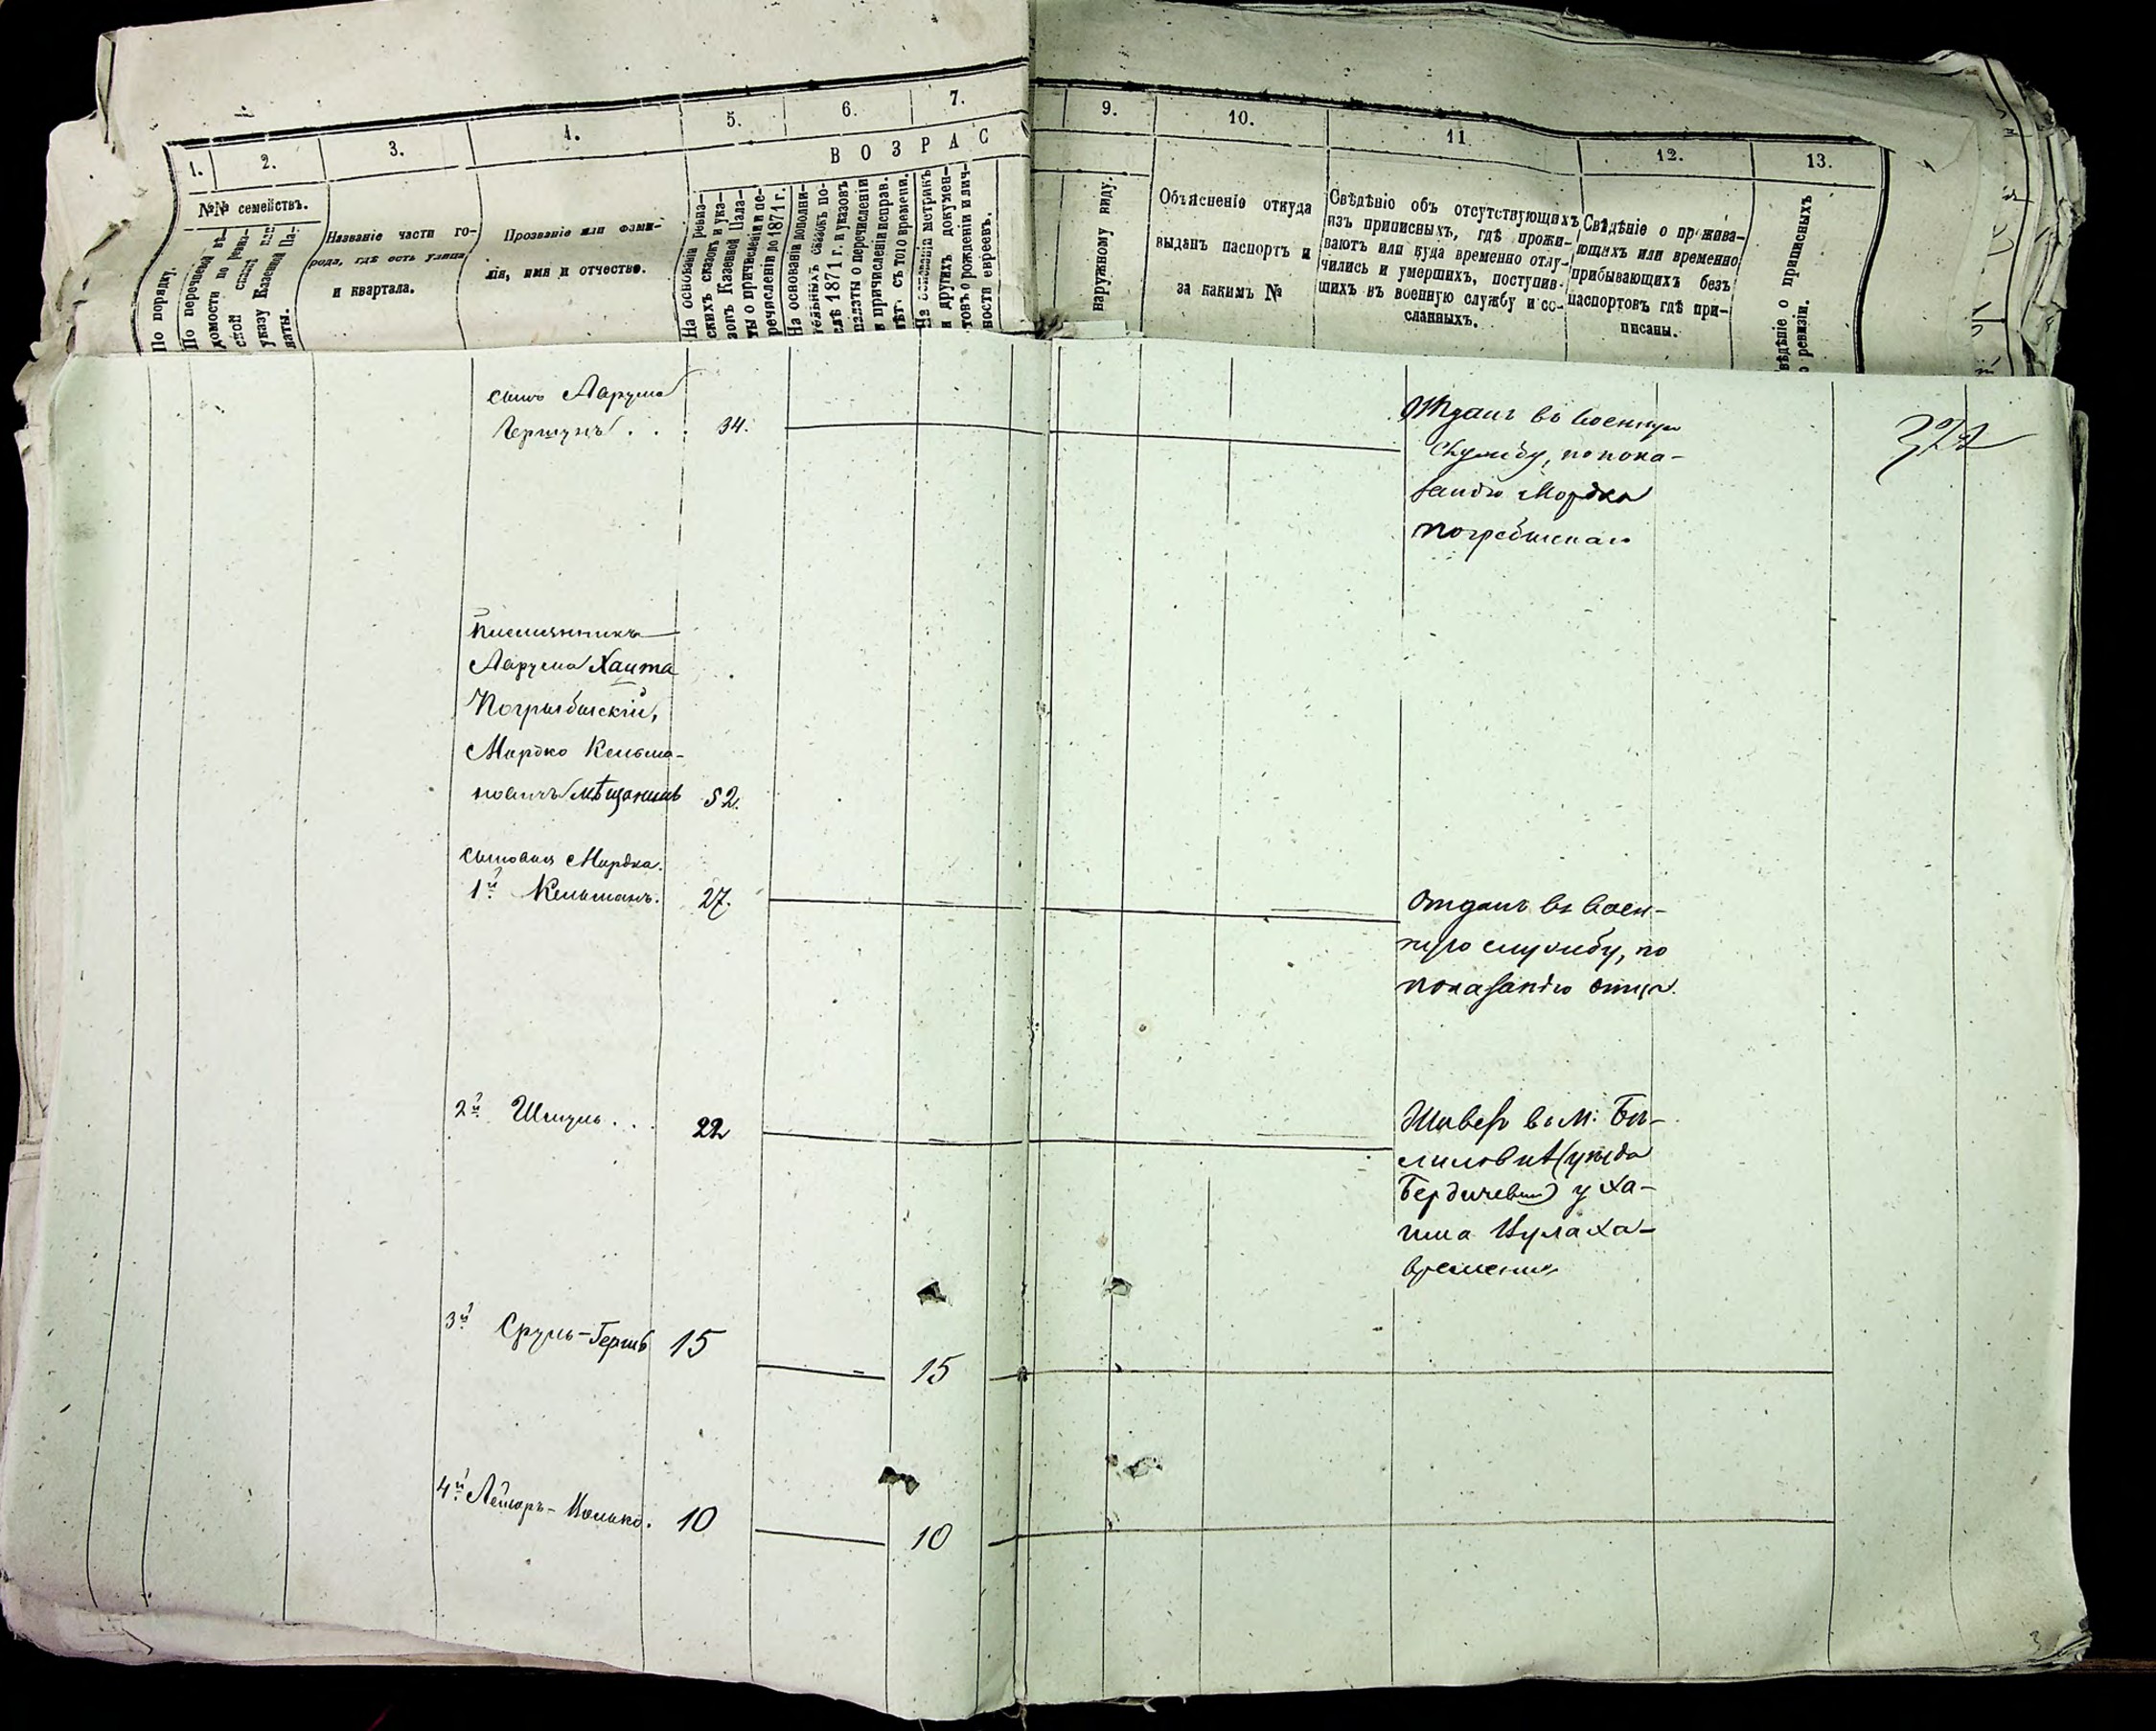 1. 2. 3. 4. 5. 6. 7. 9. 10. 11. 12. 13.
ВОЗРАС
№№ семействъ.
По порядку.
По перечневой вѣ-
домости по ревиз-
ской сказкѣ или
указу Казенной Па-
латы.
Названіе части го-
рода, гдѣ есть улица
и квартала.
Прозваніе или фами-
лія, имя и отчество.
На основаніи ревиз-
скихъ сказокъ и ука-
зовъ Казенной Пала-
ты о причисленіи и пе-
речисленіи до 1871 г.
На основаніи дополни-
тельныхъ сказокъ по-
слѣ 1871 г. и указовъ
палаты о перечисленіи
и причисленіи исправ.
лѣтъ съ того времени.
На основаніи метрикъ
и другихъ докумен-
товъ о рожденіи и лич-
ности евреевъ.
наружному виду.
Объясненіе откуда
выданъ паспортъ и
за какимъ №
Свѣдѣніе объ отсутствующихъ
изъ приписныхъ, гдѣ прожи-
ваютъ или куда временно отлу-
чились и умершихъ, поступив-
шихъ въ военную службу и со-
сланныхъ.
Свѣдѣніе о прожива-
ющихъ или временно
прибывающихъ безъ
паспортовъ гдѣ при-
писаны.
вѣдѣніе о приписныхъ
ревизіи.
сынъ Ларума
34.
Отданъ въ военную
службу, по пока-
занію Мордка
Погребискаго
Племянникъ
Ларума Хаита
Погрыбыскій,
Мордко Кельма-
новичъ мѣщанинъ 52.
сыновья Мордка.
1й Кельманъ. 27.
Отданъ въ воен-
ную службу, по
показанію отца.
2й Шмуль . . . 22
Живетъ въ м: Бѣ-
лиловкѣ (уѣзда
Бердичев) у Ха-
има
временно
3й Сруль-Гершъ 15 15
4й Лейзоръ-Ионько. 10 10